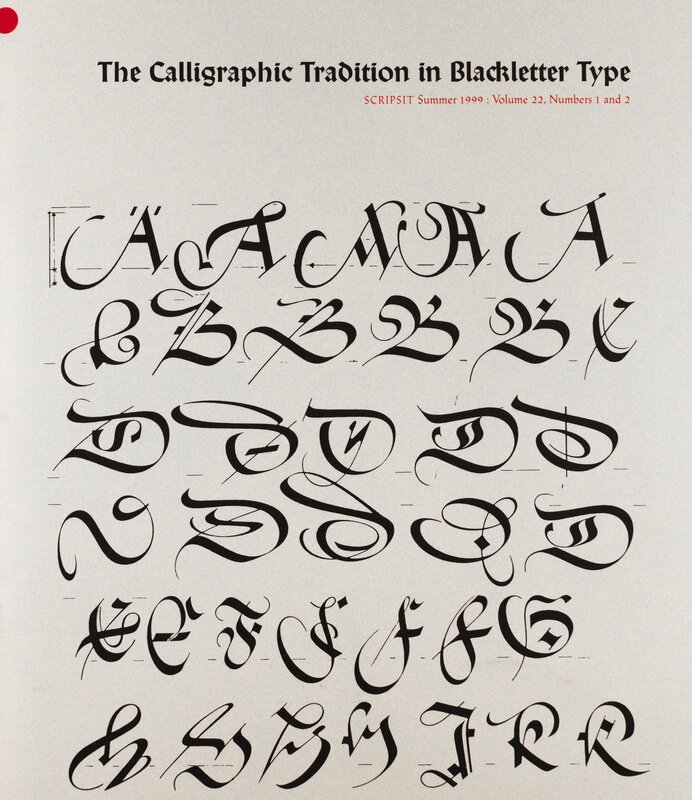 The Calligraphic Tradition in Blackletter Type
SCRIPSIT Summer 1999 : Volume 22, Numbers 1 and 2
Ä A A A
B B B B C
D D D D D
D D D
E E F F F F G
H H H